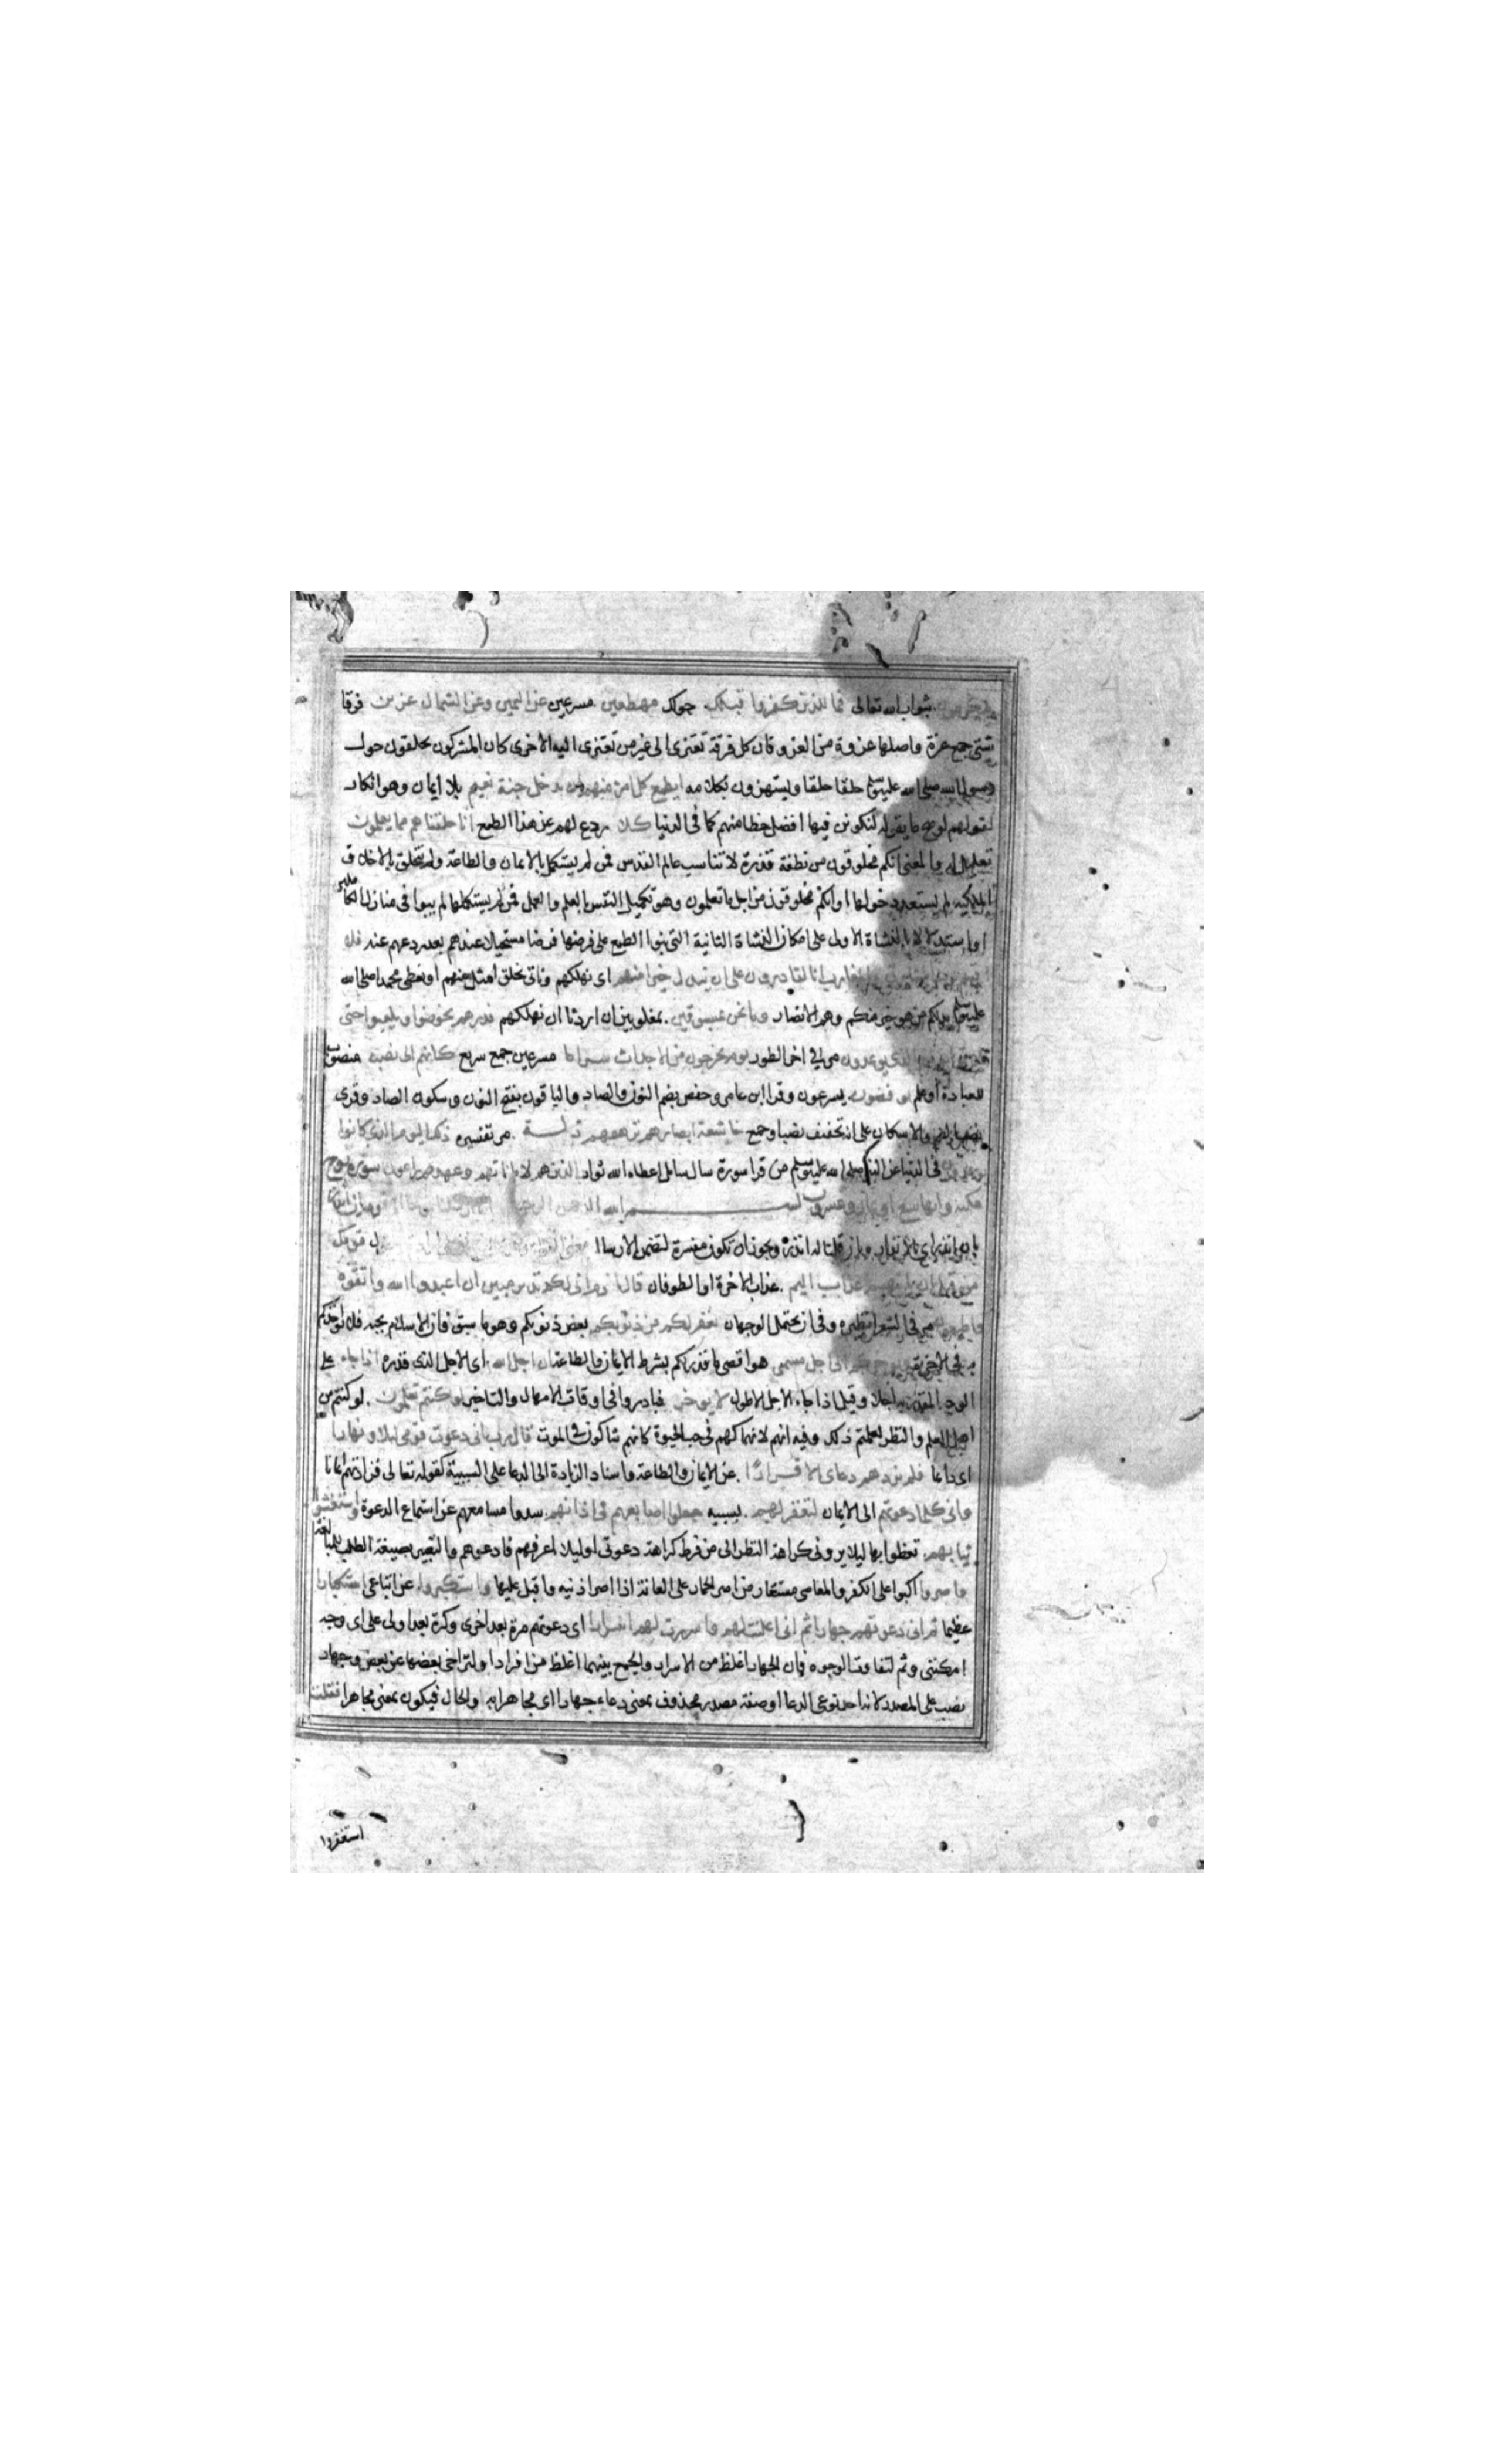 بثواب الله تعالى فما للذين كفروا قبلك حولك مهطعين مسرعين عن اليمين وعن الشمال عزين فرقا
شتى جمع عزة واصلها عزوة من العزو فان كل فرقة تعتزى الى غير من تعتزى اليه الاخرى كان المشركون يحلقون حول
رسول الله صلى الله عليه وسلم حلقا حلقا ويستهزون بكلامه ايطمع كل امرئ منهم ان يدخل جنة نعيم بلا ايمان وهو انكار
لقولهم لو صح ما يقوله لنكونن فيها افضل حظا منهم كما فى الدنيا كلا ردع لهم عن هذا الطمع انا خلقناهم مما يعلمون
تعليل له والمعنى انكم مخلوقون من نطفة قذرة لا تناسب عالم القدس فمن لم يستكمل بالايمان والطاعة ولم يتخلق بالاخلاق
الملكية لم يستعد دخولها او انكم مخلوقون من اجل ما تعلمون وهو تكميل النفس بالعلم والعمل فمن لم يستكملها لم يبوا فى منازل الكاملين
او استدلال بالنشاة الاولى على امكان النشاة الثانية التى بنوا الطمع على فرضها فرضا مستحيلا عندهم بعد ردعهم عنه فلا
اقسم برب المشارق والمغارب انا لقادرون على ان نبدل خيرا منهم اى نهلكهم وناتى بخلق امثل منهم او نعطى محمدا صلى الله
عليه وسلم بدلكم من هو خير منكم وهم الانصار وما نحن بمسبوقين بمغلوبين ان اردنا ان نهلكهم فذرهم يخوضوا ويلعبوا حتى
يلاقوا يومهم الذى يوعدون مر فى اخر الطور يوم يخرجون من الاجداث سراعا مسرعين جمع سريع كانهم الى نصب منصوب
للعبادة او علم يوفضون يسرعون وقرا ابن عامر وحفص بضم النون والصاد والباقون بفتح النون وسكون الصاد وقرى
بالضم والاسكان على انه تخفيف نصب او جمع خاشعة ابصارهم ترهقهم ذلة مر تفسيره ذلك اليوم الذى كانوا
يوعدون فى الدنيا عن النبى صلى الله عليه وسلم من قرا سورة سال سائل اعطاه الله ثواب الذين هم لاماناتهم وعهدهم راعون سورة نوح
مكية وايها سبع او ثمان وعشرون بسم الله الرحمن الرحيم انا ارسلنا نوحا الى قومه ان انذر
اى بالانذار او بان قلنا له انذر ويجوز ان تكون مفسرة لتضمن الارسال معنى القول قومك
من قبل ان ياتيهم عذاب اليم عذاب الاخرة او الطوفان قال يا قوم انى لكم نذير مبين ان اعبدوا الله واتقوه
واطيعون مر فى الشعرا نظيره وفى ان يحتمل الوجهان يغفر لكم من ذنوبكم بعض ذنوبكم وهو ما سبق فان الاسلام يجبه فلا يؤاخذكم
به فى الاخرة ويؤخركم الى اجل مسمى هو اقصى ما قدر لكم بشرط الايمان والطاعة ان اجل الله اى الاجل الذى قدره اذا جاء على
الوجه المقدر به اجلا وقيل اذا جاء الاجل الاطول لا يوخر فبادروا فى اوقات الامهال والتاخير لو كنتم تعلمون لو كنتم من
اهل العلم والنظر لعلمتم ذلك وفيه انهم لانهماكهم فى حب الحيوة كانهم شاكون فى الموت قال رب انى دعوت قومى ليلا ونهارا
اى دائما فلم يزدهم دعاى الا فرارا عن الايمان والطاعة واسناد الزيادة الى الدعا على السببية كقوله تعالى فزادتهم ايمانا
وانى كلما دعوتهم الى الايمان لتغفر لهم بسببه جعلوا اصابعهم فى اذانهم سدوا مسامعهم عن استماع الدعوة واستغشوا
ثيابهم تغطوا بها ليلا يرونى كراهة النظر الى من فرط كراهة دعوتى او ليلا اعرفهم فادعوهم والتعبير بصيغة الطلب للمبالغة
واصروا اكبوا على الكفر والمعاصى مستعار من اصر الحمار على العانة اذا اصر اذنيه واقبل عليها واستكبروا عن اتباعى استكبارا
عظيما ثم انى دعوتهم جهارا ثم انى اعلنت لهم واسررت لهم اسرارا اى دعوتهم مرة بعد اخرى وكرة بعد اولى على اى وجه
امكننى وثم لتفاوت الوجوه فان الجهار اغلظ من الاسرار والجمع بينهما اغلظ من افراد او لتراخى بعضها عن بعض وجهارا
نصب على المصدر لانه احد نوعى الدعا او صفة مصدر محذوف بمعنى دعاء جهارا اى مجاهرا به او الحال فيكون بمعنى مجاهرا فقلت
استغفروا